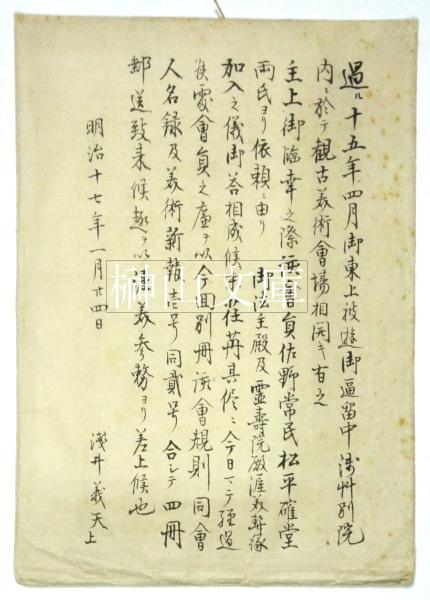 過ル十五年四月御東上被遊御逼留中浅艸別院
内ニ於テ観古美術會場相開キ有之
主上御臨幸之際該會員佐野常民松平確堂
両氏ヨリ依頼ニ由リ 御法主殿及霊寿院殿
加入之儀御答相成候
會員之廉ヲ以今回別冊該會規則同會
人名録及美術新報壱号同貳号合シテ四冊
郵送致来候趣ヲ以 参務ヨリ差上候也
明治十七年一月廿四日
淺井義天上
榊山文庫